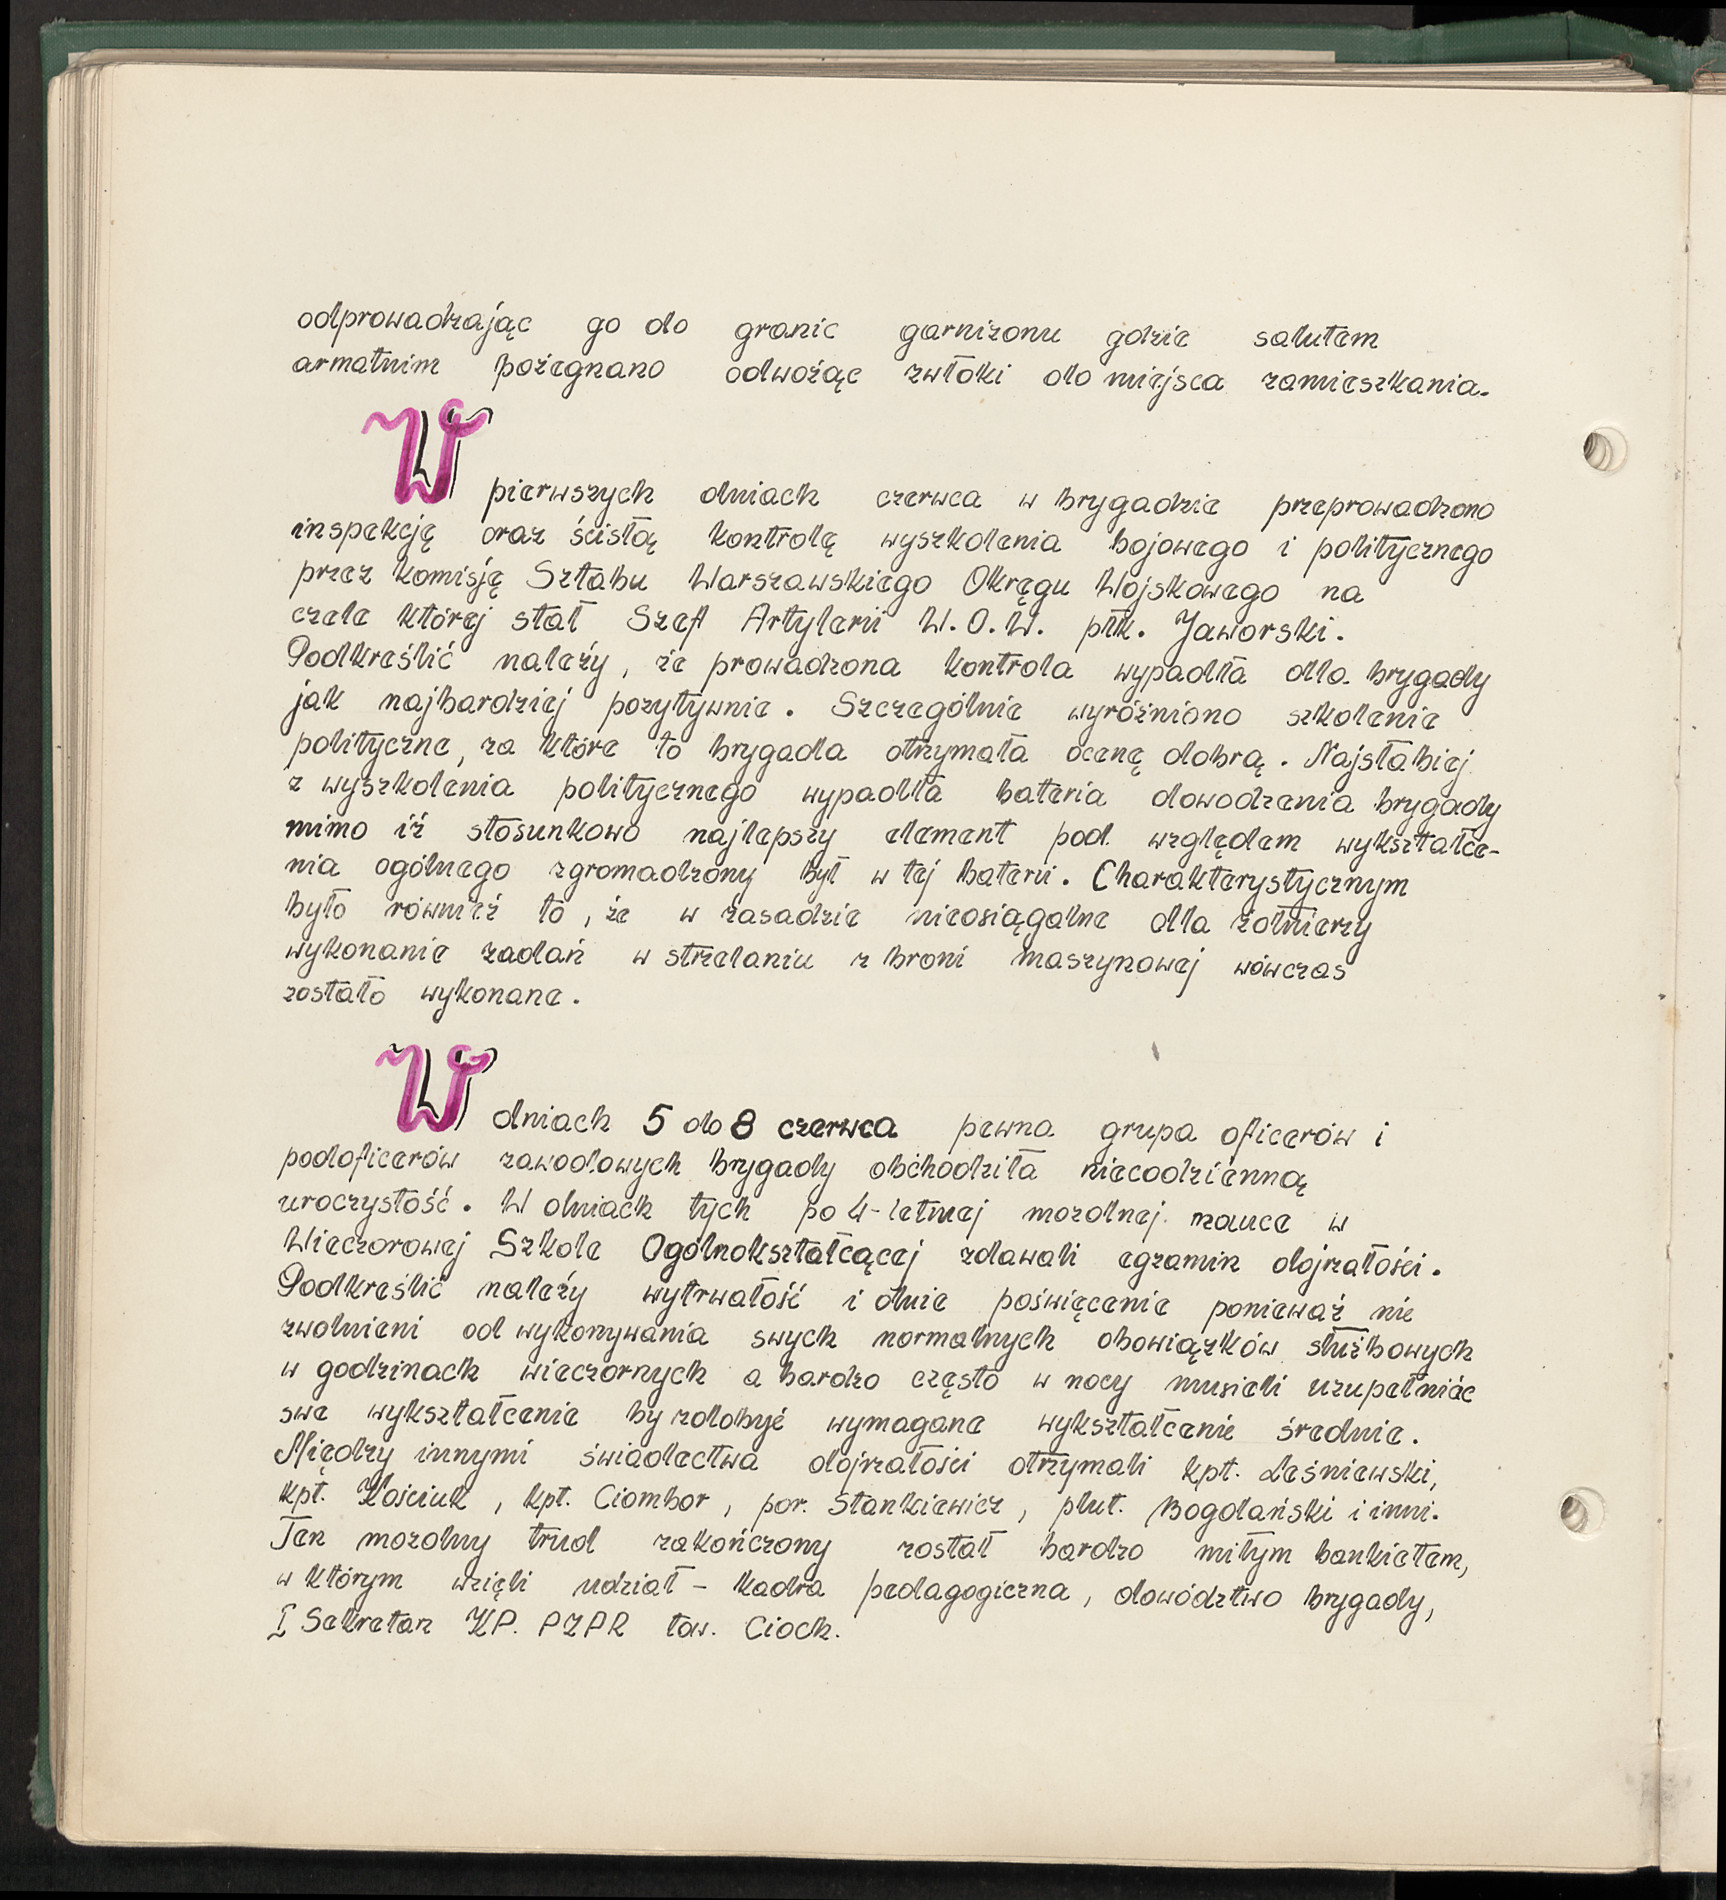 odprowadzając go do granic garnizonu gdzie salutem
armatnim pożegnano odwożąc zwłoki do miejsca zamieszkania.
W pierwszych dniach czerwca w brygadzie przeprowadzono
inspekcję oraz ścisłą kontrolę wyszkolenia bojowego i politycznego
przez komisję Sztabu Warszawskiego Okręgu Wojskowego na
czele której stał Szef Artylerii W.O.W. płk. Jaworski.
Podkreślić należy, że prowadzona kontrola wypadła dla brygady
jak najbardziej pozytywnie. Szczególnie wyróżniono szkolenie
polityczne, za które to brygada otrzymała ocenę dobrą. Najsłabiej
z wyszkolenia politycznego wypadła bateria dowodzenia brygady
mimo iż stosunkowo najlepszy element pod względem wykształce-
nia ogólnego zgromadzony był w tej baterii. Charakterystycznym
było również to, że w zasadzie nieosiągalne dla żołnierzy
wykonanie zadań w strzelaniu z broni maszynowej wówczas
zostało wykonane.
W dniach 5 do 8 czerwca pewna grupa oficerów i
podoficerów zawodowych brygady obchodziła niecodzienną
uroczystość. W dniach tych po 4-letniej mozolnej nauce w
Wieczorowej Szkole Ogólnokształcącej zdawali egzamin dojrzałości.
Podkreślić należy wytrwałość i duie poświęcenie ponieważ nie
zwolnieni od wykonywania swych normalnych obowiązków służbowych
w godzinach wieczornych a bardzo często w nocy musieli uzupełniać
swe wykształcenie by zdobyć wymagane wykształcenie średnie.
Między innymi świadectwa dojrzałości otrzymali kpt. Leśniewski,
kpt. Kościuk, kpt. Ciombor, por. Stankiewicz, plut. Bogdański i inni.
Ten mozolny trud zakończony został bardzo miłym bankietem,
w którym wzięli udział - kadra pedagogiczna, dowództwo brygady,
I Sekretarz KP. PZPR tow. Cioch.